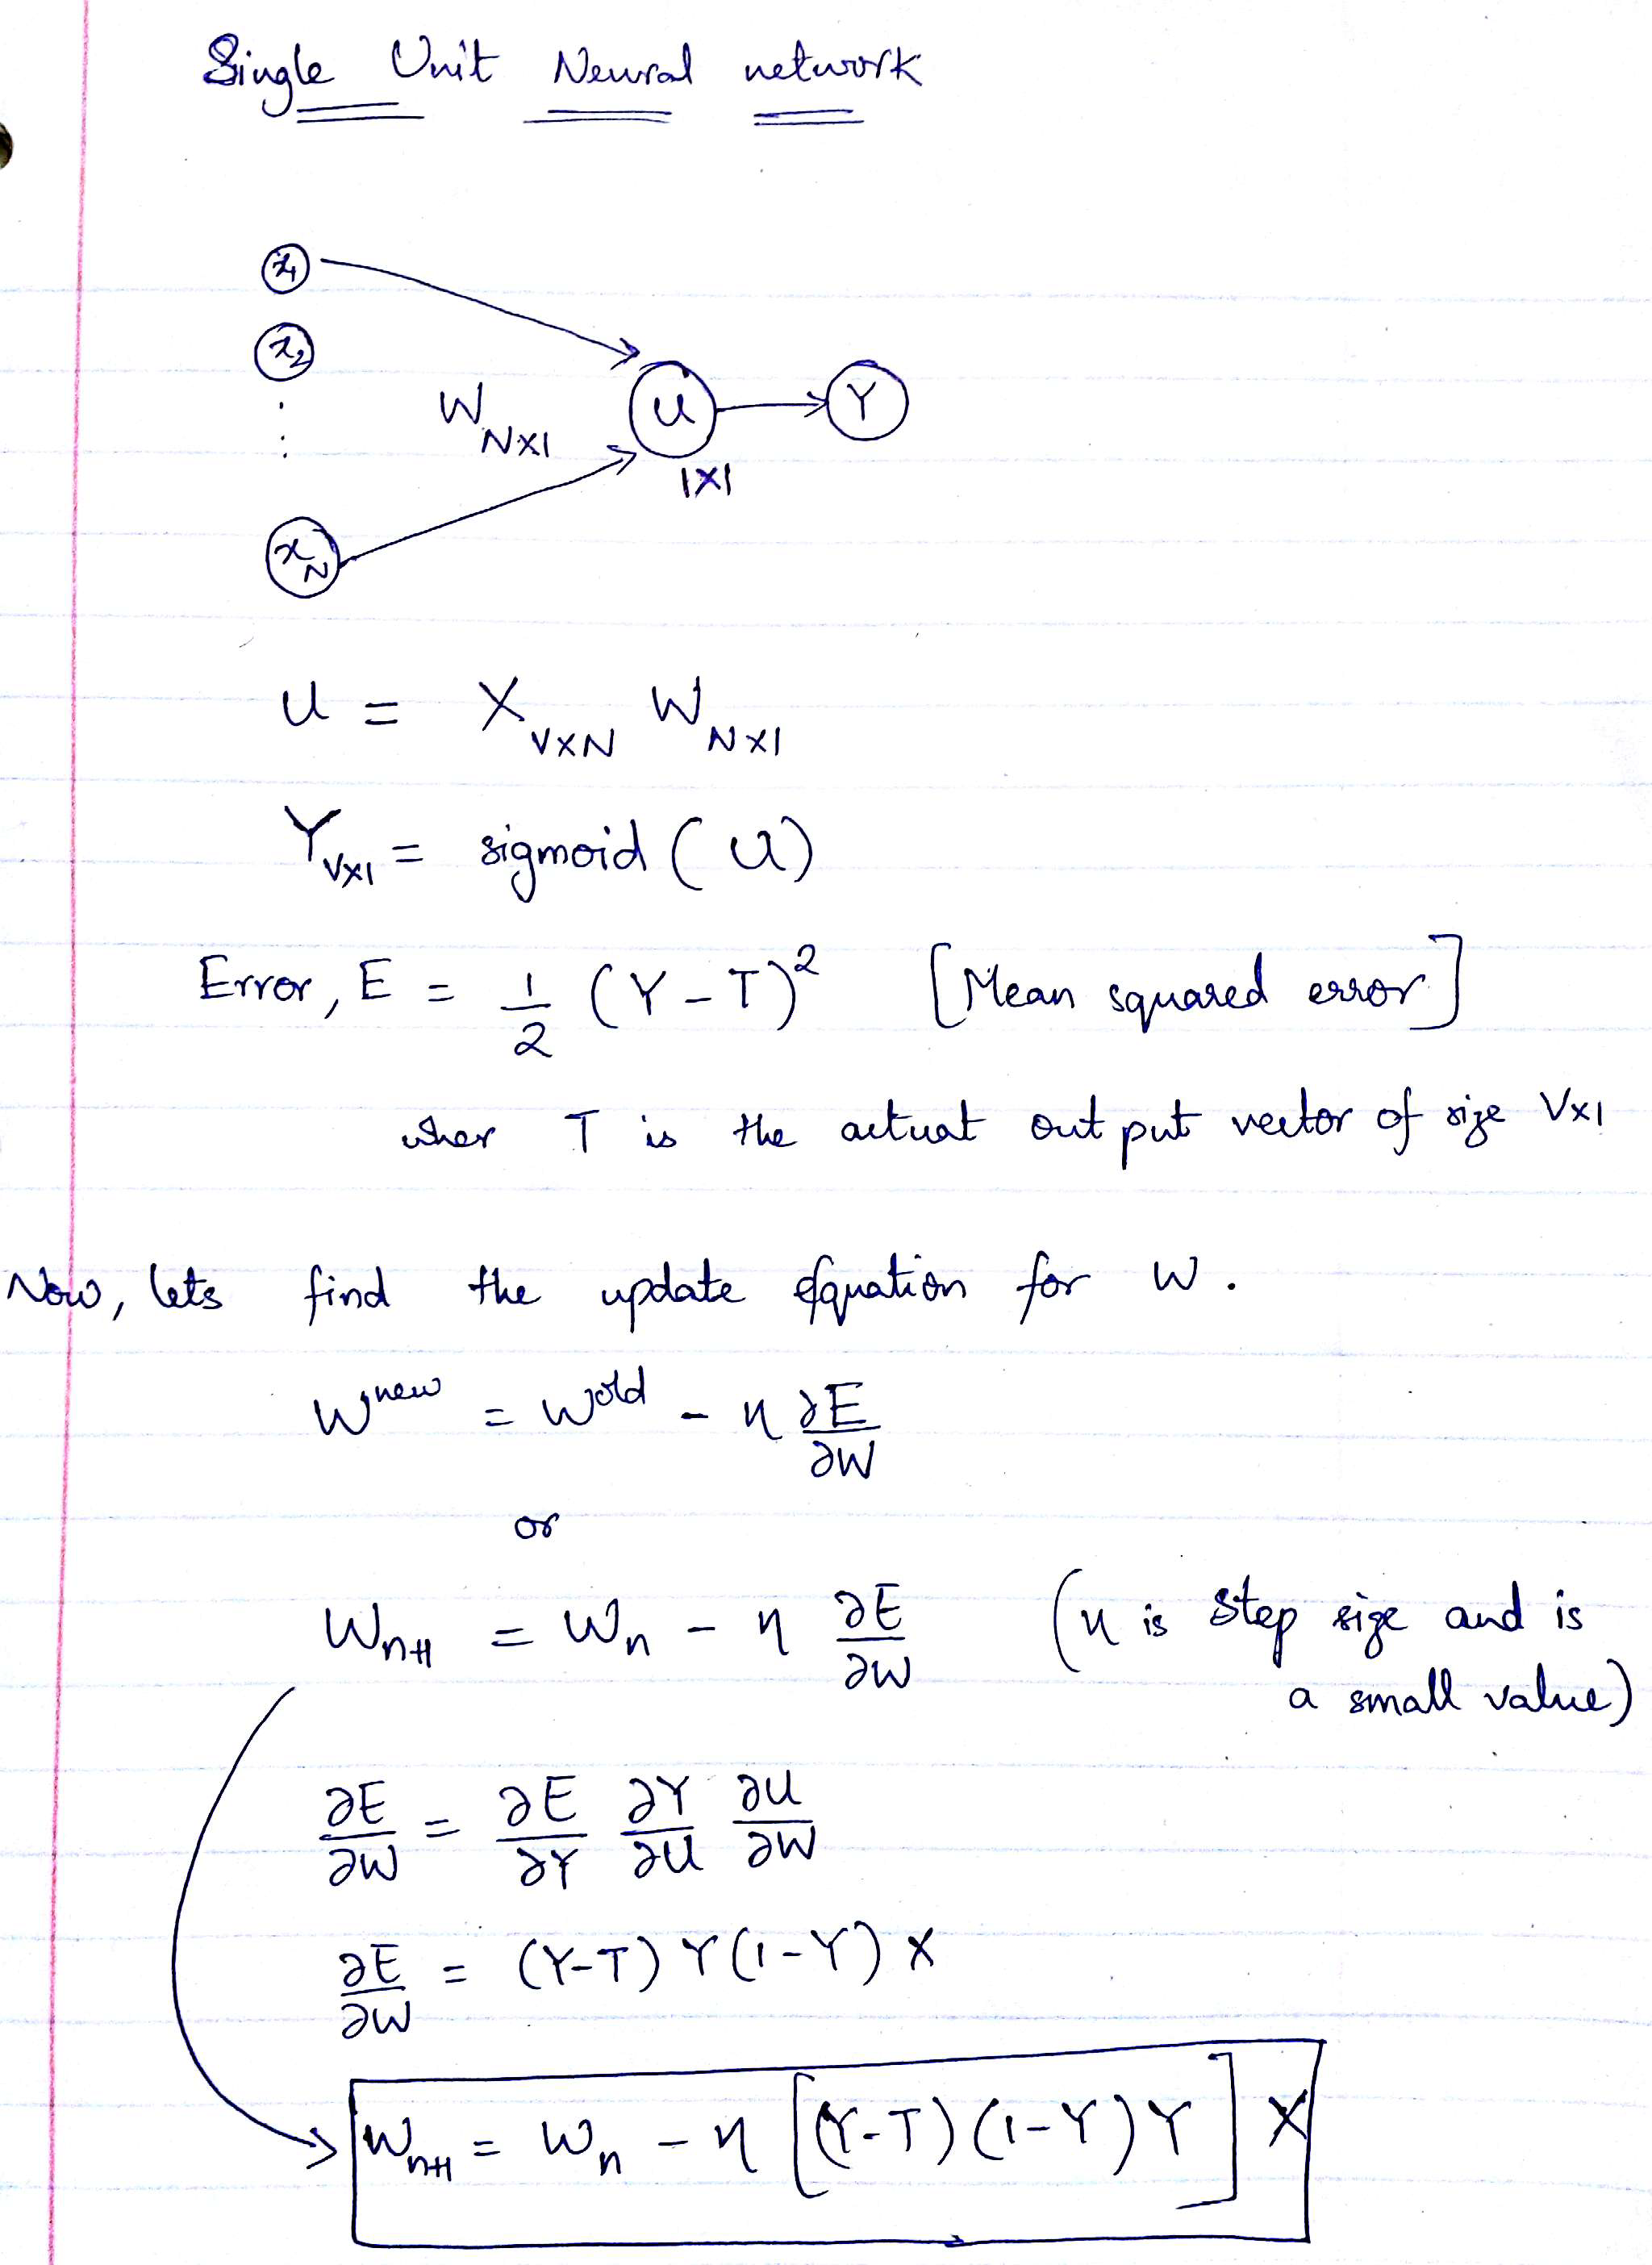 Single Unit Neural network
x₁
x₂
W N×1
U
Y
1×1
x N
U = X V×N W N×1
Y V×1 = sigmoid (U)
Error, E = 1/2 (Y - T)² [Mean squared error]
wher T is the actual output vector of size V×1
Now, lets find the update equation for W.
W^new = W^old - η ∂E/∂W
or
W n+1 = W n - η ∂E/∂W (η is step size and is
a small value)
∂E/∂W = ∂E/∂Y ∂Y/∂U ∂U/∂W
∂E/∂W = (Y-T) Y(1-Y) X
W n+1 = W n - η [(Y-T)(1-Y)Y] X